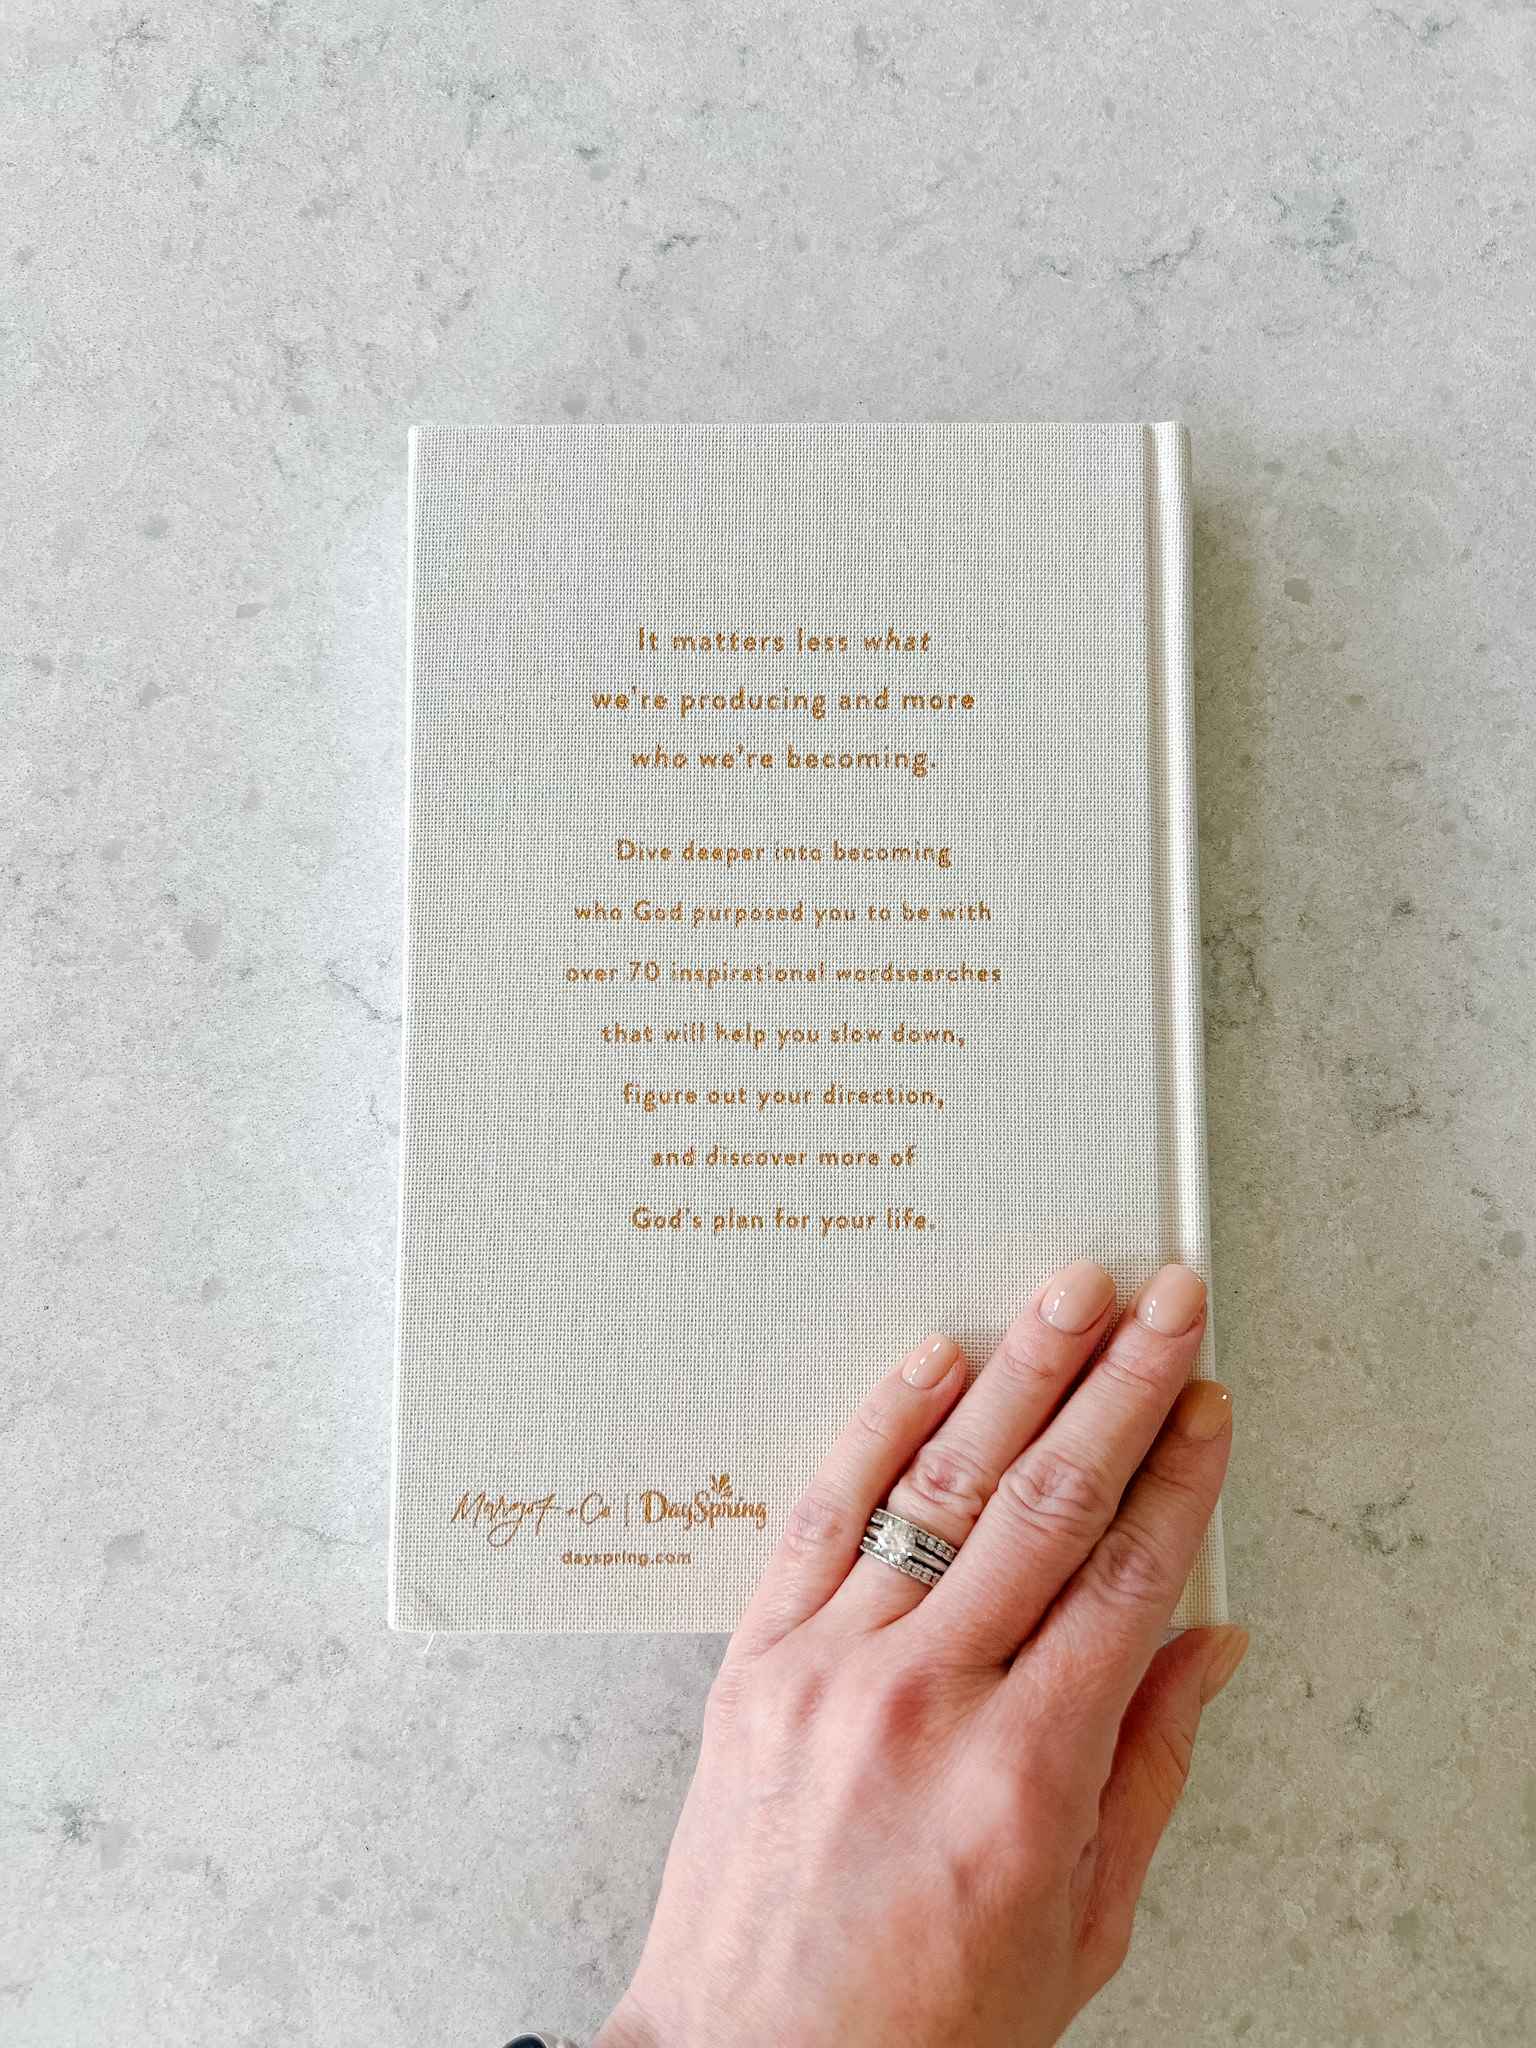 It matters less what
we're producing and more
who we're becoming.
Dive deeper into becoming
who God purposed you to be with
over 70 inspirational wordsearches
that will help you slow down,
figure out your direction,
and discover more of
God's plan for your life.
Margot + Co | DaySpring
dayspring.com